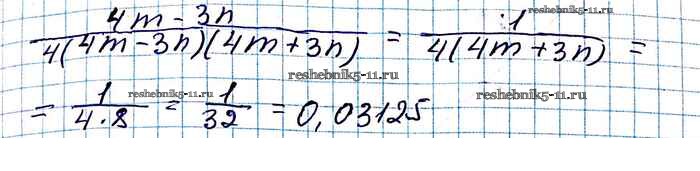 4m - 3n / 4(4m-3n)(4m+3n) = 1 / 4(4m+3n) =
reshebnik5-11.ru
reshebnik5-11.ru
= 1 / 4·8 = 1 / 32 = 0,03125
reshebnik5-11.ru